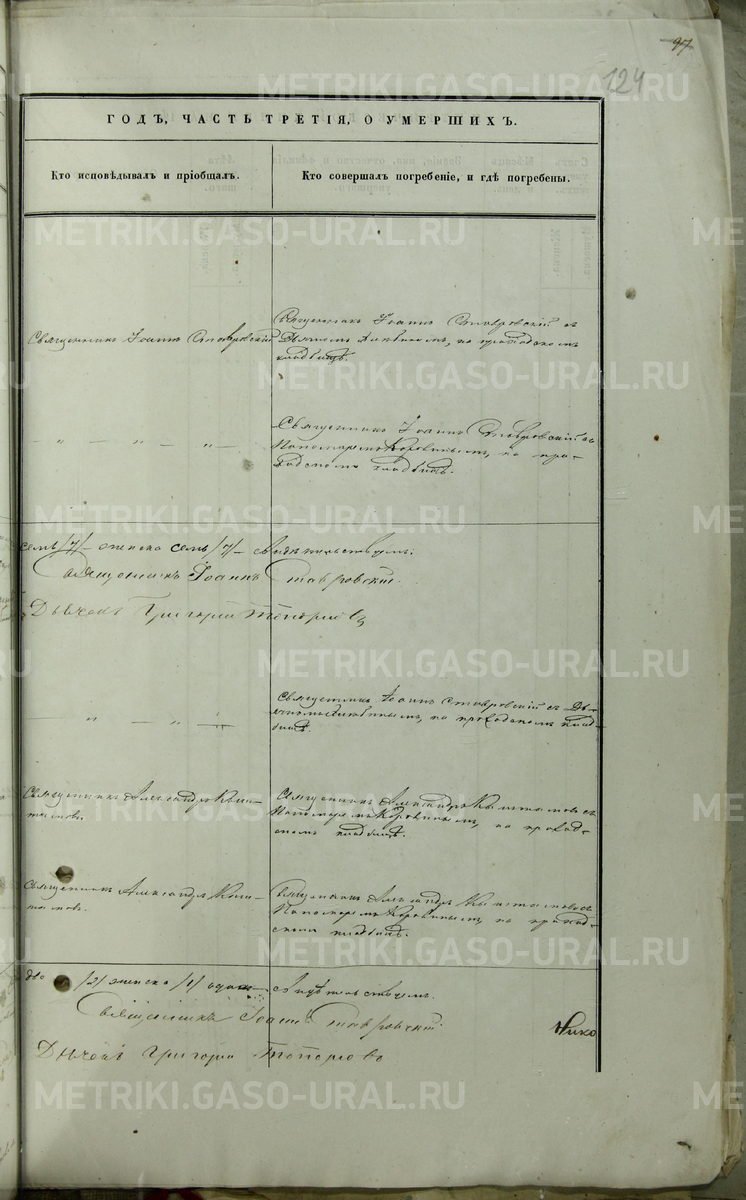 97
124
ГОДЪ, ЧАСТЬ ТРЕТІЯ, О УМЕРШИХЪ.
Кто исповѣдывалъ и пріобщалъ.
Кто совершалъ погребеніе, и гдѣ погребены.
Священникъ Іоаннъ Ставровскій
Священникъ Іоаннъ Ставровскій съ
на приходскомъ
кладбищѣ.
— " — " —
Священникъ Іоаннъ Ставровскій съ
Пономаремъ Коровинымъ, на при-
ходскомъ кладбищѣ.
семь /7/ женска семь /7/ Свидѣтельствуемъ:
Священникъ Іоаннъ Ставровскій.
Дьячекъ Григорій Топорковъ
" — " —
Священникъ Іоаннъ Ставровскій съ Дья-
на приходскомъ клад-
бищѣ.
Священникъ Александръ Кыш-
тымовъ.
Священникъ Александръ Кыштымовъ съ
Пономаремъ Коровинымъ, на приход-
скомъ кладбищѣ.
Священникъ Александръ Кыш-
тымовъ.
Священникъ Александръ Кыштымовъ съ
Пономаремъ Коровинымъ, на приход-
скомъ кладбищѣ.
два /2/ женска /1/ одна свидѣтельствуемъ.
Священникъ Іоаннъ Ставровскій
Нико
Дьячекъ Григорій Топорковъ
METRIKI.GASO-URAL.RU